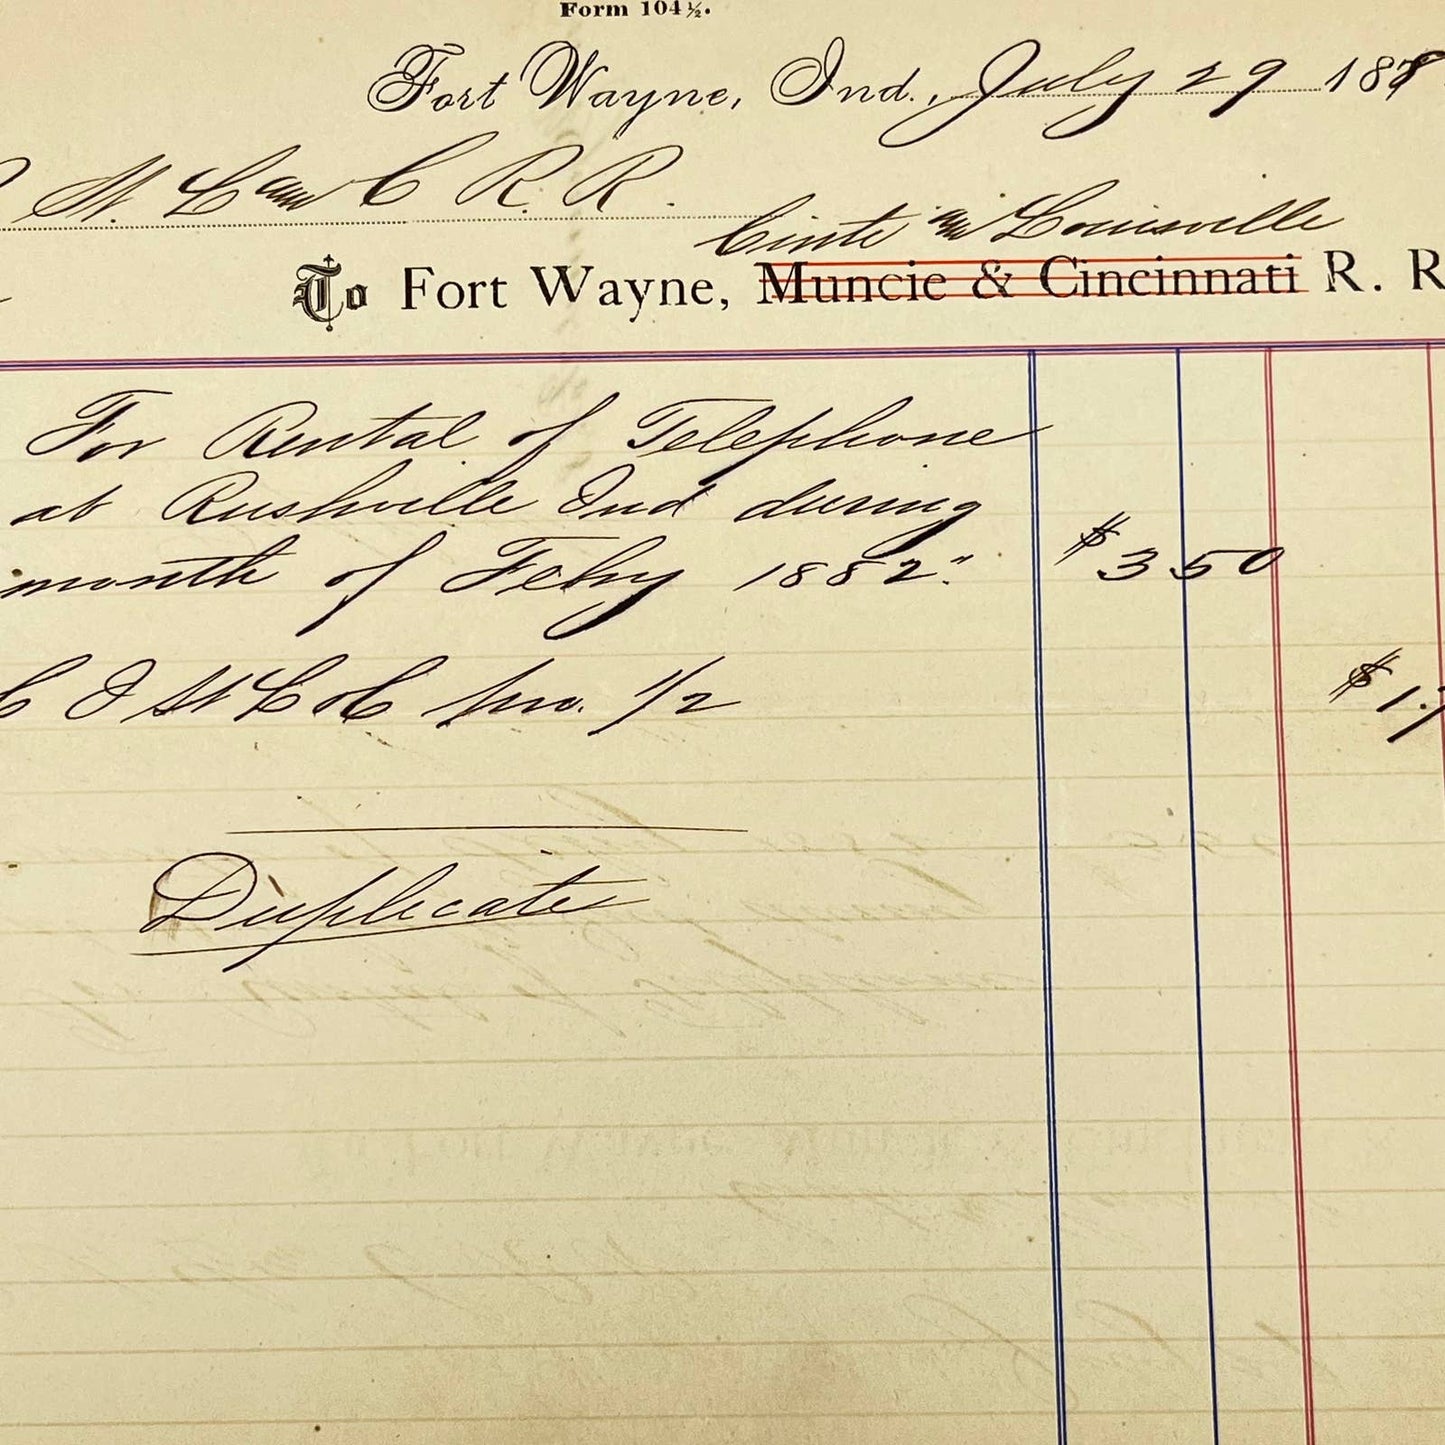 Form 104½.
Fort Wayne, Ind., July 29 188
St. L and C R. R.
Cinti and Louisville
To Fort Wayne, Muncie & Cincinnati R. R
For Rental of Telephone
at Rushville Ind during
month of Feby 1882." $3 50
C I St L & C pro. 1/2 $1.7
Duplicate